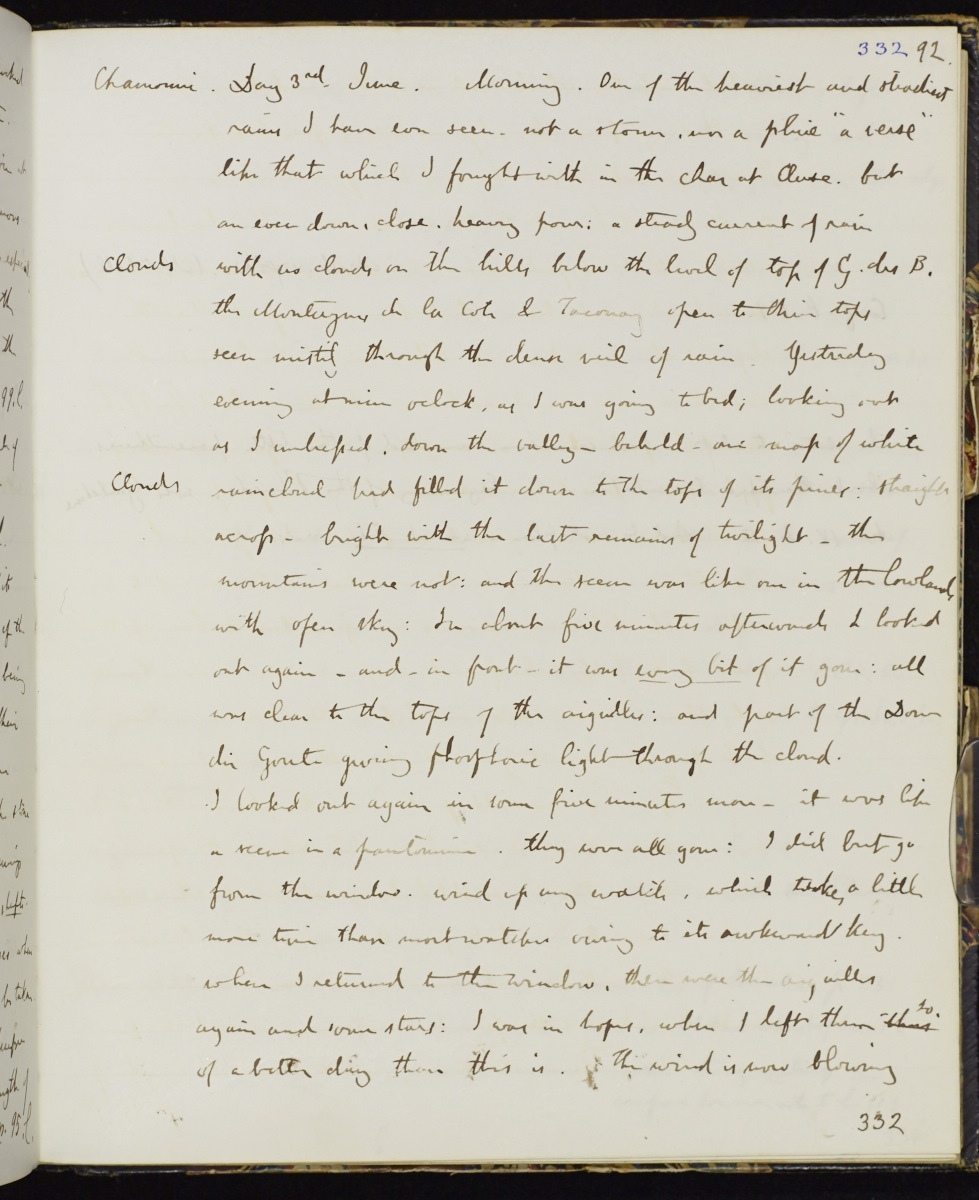 332 92.
Chamouni. Day 3rd June. Morning. One of the heaviest and steadiest
rains I have ever seen. not a storm, nor a pluie "a verse"
like that which I fought with in the char at Cluse. but
an even down, close, heavy pour: a steady current of rain
Clouds with no clouds on the hills below the level of top of G. des B.
the Montagnes de la Cote & Taconay open to their tops
seen mistily through the dense veil of rain. Yesterday
evening at nine oclock, as I was going to bed; looking out
as I undressed, down the valley - behold - one mass of white
Clouds raincloud had filled it down to the tops of its pines: straight
across - bright with the last remains of twilight - the
mountains were not: and the scene was like one in the lowlands
with open sky: In about five minutes afterwards I looked
out again - and - in front - it was every bit of it gone: all
was clear to the tops of the aiguilles: and part of the Dome
du Goute giving phosphoric light through the cloud.
I looked out again in some five minutes more - it was like
a scene in a pantomime. they were all gone: I did but go
from the window. wind up my watch, which takes a little
more time than most watches owing to its awkward key.
when I returned to the window, there were the aiguilles
again and some stars: I was in hopes, when I left them to
of a better day than this is. The wind is now blowing
332